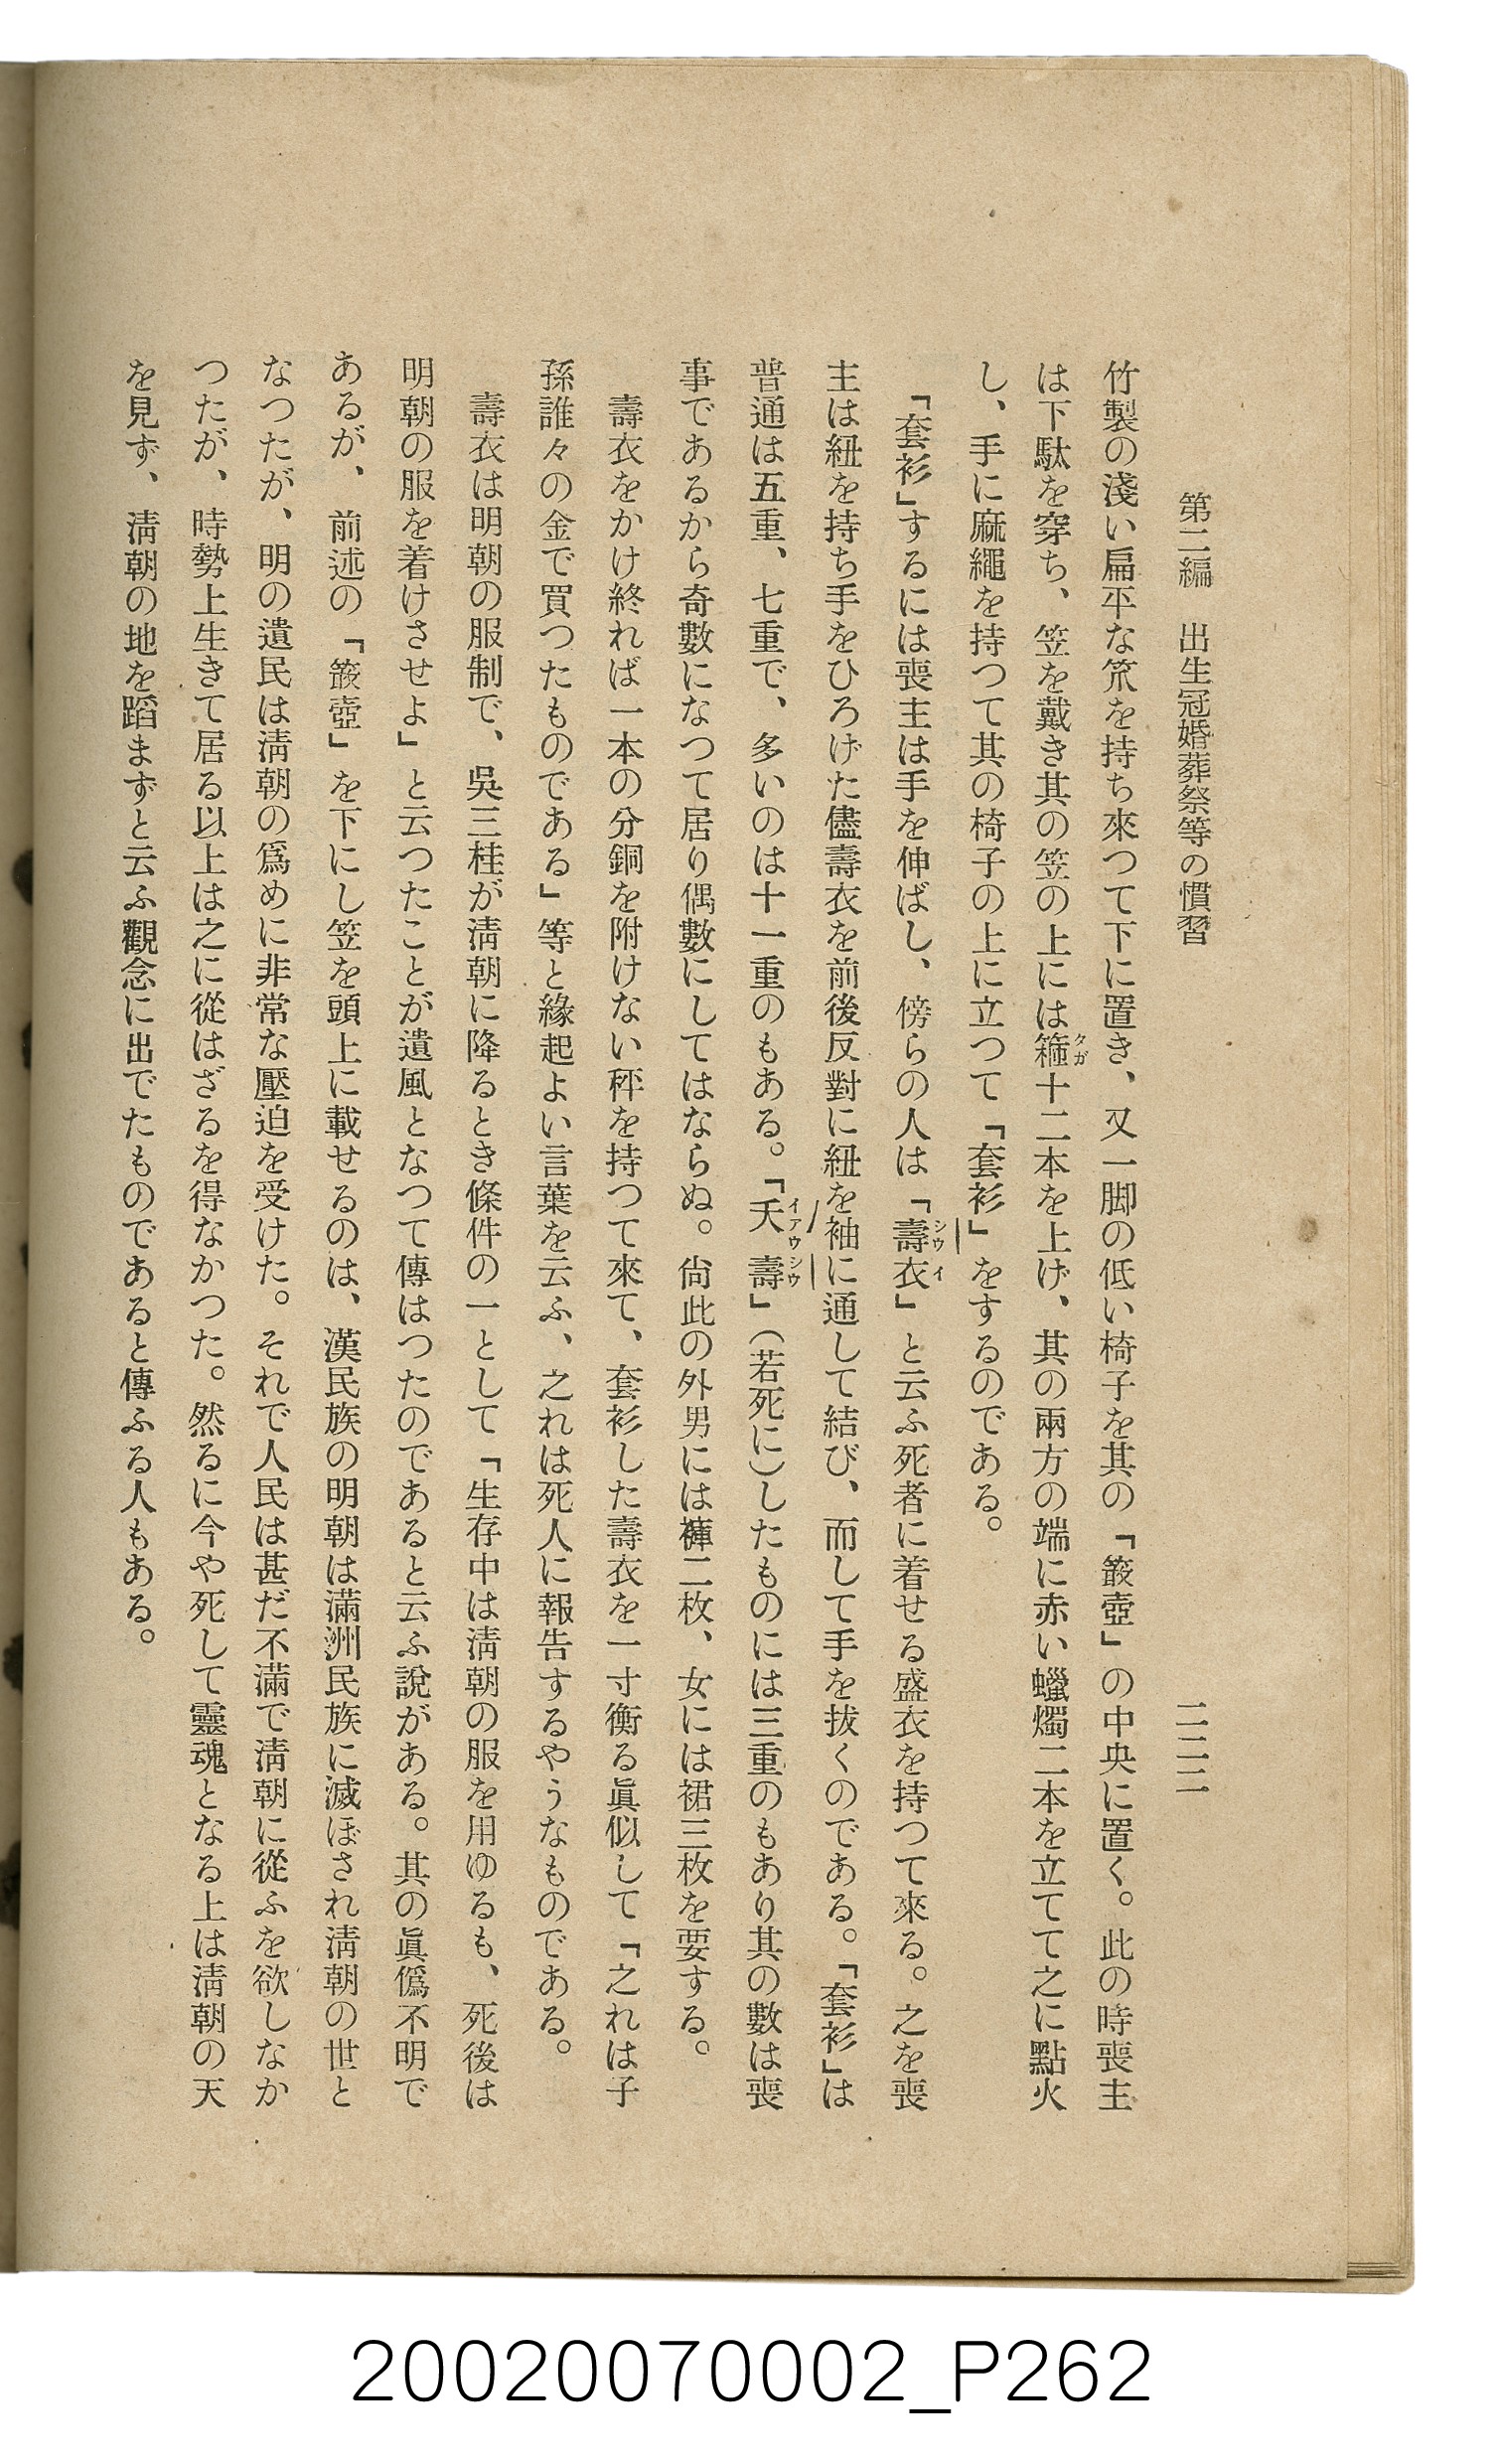 第二編　出生冠婚葬祭等の慣習
二二二
竹製の淺い扁平な笊を持ち來つて下に置き、又一脚の低い椅子を其の「簸壺」の中央に置く。此の時喪主
は下駄を穿ち、笠を戴き其の笠の上には箍十二本を上げ、其の兩方の端に赤い蠟燭二本を立てて之に點火
し、手に麻繩を持つて其の椅子の上に立つて「套衫」をするのである。
「套衫」するには喪主は手を伸ばし、傍らの人は「壽衣」と云ふ死者に着せる盛衣を持つて來る。之を喪
主は紐を持ち手をひろげた儘壽衣を前後反對に紐を袖に通して結び、而して手を拔くのである。「套衫」は
普通は五重、七重で、多いのは十一重のもある。「夭壽」(若死に)したものには三重のもあり其の數は喪
事であるから奇數になつて居り偶數にしてはならぬ。尙此の外男には褲二枚、女には裙三枚を要する。
壽衣をかけ終れば一本の分銅を附けない秤を持つて來て、套衫した壽衣を一寸衡る眞似して「之れは子
孫誰々の金で買つたものである」等と緣起よい言葉を云ふ、之れは死人に報告するやうなものである。
壽衣は明朝の服制で、吳三桂が淸朝に降るとき條件の一として「生存中は淸朝の服を用ゆるも、死後は
明朝の服を着けさせよ」と云つたことが遺風となつて傳はつたのであると云ふ說がある。其の眞僞不明で
あるが、前述の「簸壺」を下にし笠を頭上に載せるのは、漢民族の明朝は滿洲民族に滅ぼされ淸朝の世と
なつたが、明の遺民は淸朝の爲めに非常な壓迫を受けた。それで人民は甚だ不滿で淸朝に從ふを欲しなか
つたが、時勢上生きて居る以上は之に從はざるを得なかつた。然るに今や死して靈魂となる上は淸朝の天
を見ず、淸朝の地を蹈まずと云ふ觀念に出でたものであると傳ふる人もある。
タガ
シウイ
イアウシウ
20020070002_P262